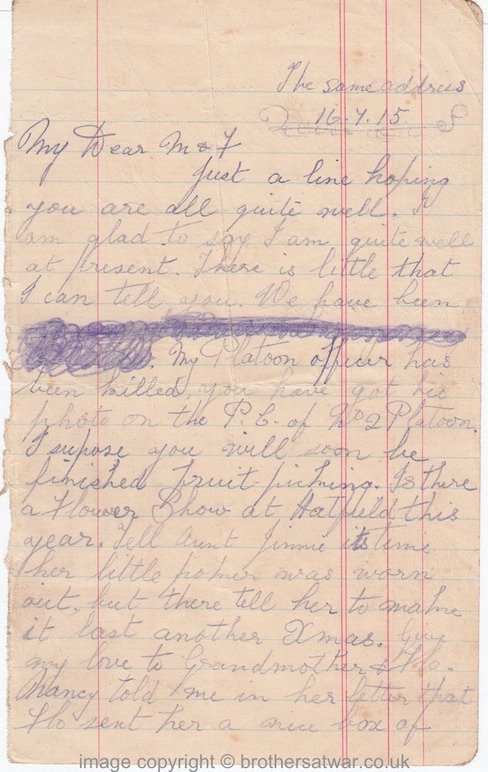 The same address
16.7.15
My Dear M & F
Just a line hoping
you are all quite well. I
am glad to say I am quite well
at present. There is little that
I can tell you. We have been
. My Platoon officer has
been killed, you have got his
photo on the P.C. of No 2 Platoon.
I supose you will soon be
finished fruit-picking. Is there
a Flower Show at Hatfield this
year. Tell Aunt Jinnie its time
her little was worn
out, but there tell her to make
it last another Xmas. Give
my love to Grandmother & Flo.
Nancy told me in her letter that
Flo sent her a nice box of
image copyright © brothersatwar.co.uk